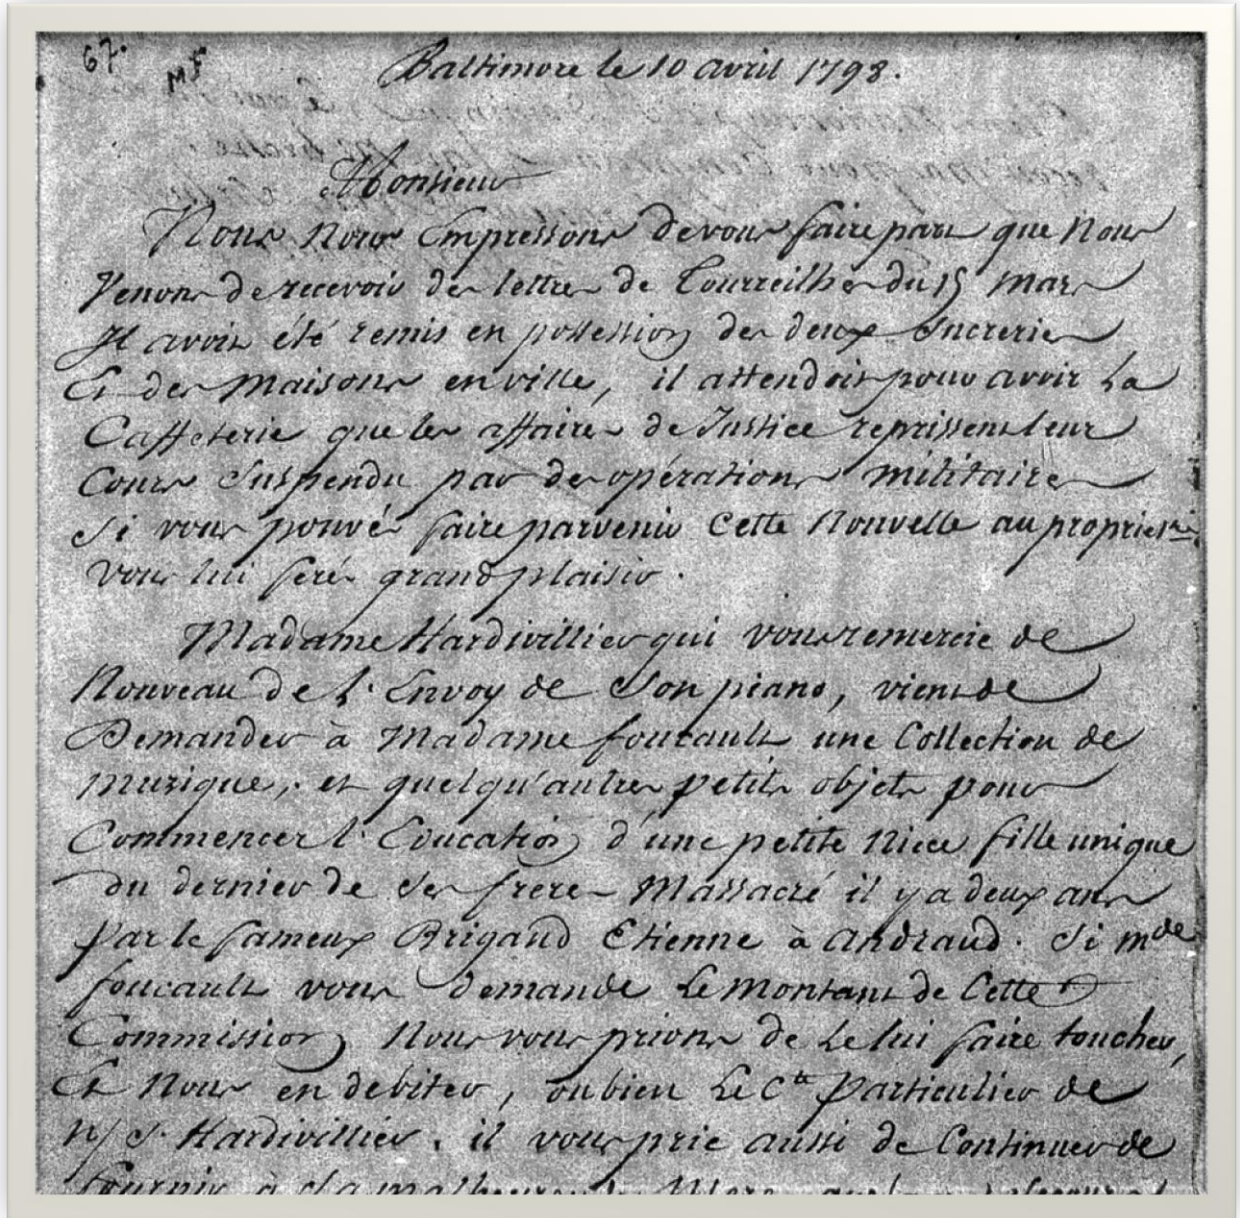 67.
MF
Baltimore le 10 avril 1798.
Monsieur
Nous nous Empressons de vous faire part que Nous
Venons de recevoir des lettres de Tourreilhes du 15 Mars
Il avoit été remis en possession des deux Sucreries
Et des Maisons en ville, il attendoit pour avoir La
Caffeterie que les affaires de Justice reprissent leur
Cours Suspendu par des opérations militaires
Si vous pouvés faire parvenir Cette Nouvelle au propriet.re
vous lui ferés grand plaisir.
Madame Hardivillier qui vous remercie de
Nouveau de L'Envoy de Son piano, vient de
Demander à Madame foucault une Collection de
Musique, et quelqu'autres petits objets pour
Commencer l'Education d'une petite Niece fille unique
du dernier de Ses freres Massacré il y a deux ans
Par le fameux Brigand Etienne à Andraud. Si mde
foucault vous demande Le Montant de Cette
Commission Nous vous prions de Le lui faire toucher,
Et Nous en debiter, ou bien Le Cte Particulier de
N/ S. Hardivillier. il vous prie aussi de Continuer de
fournir à Sa malheureuse